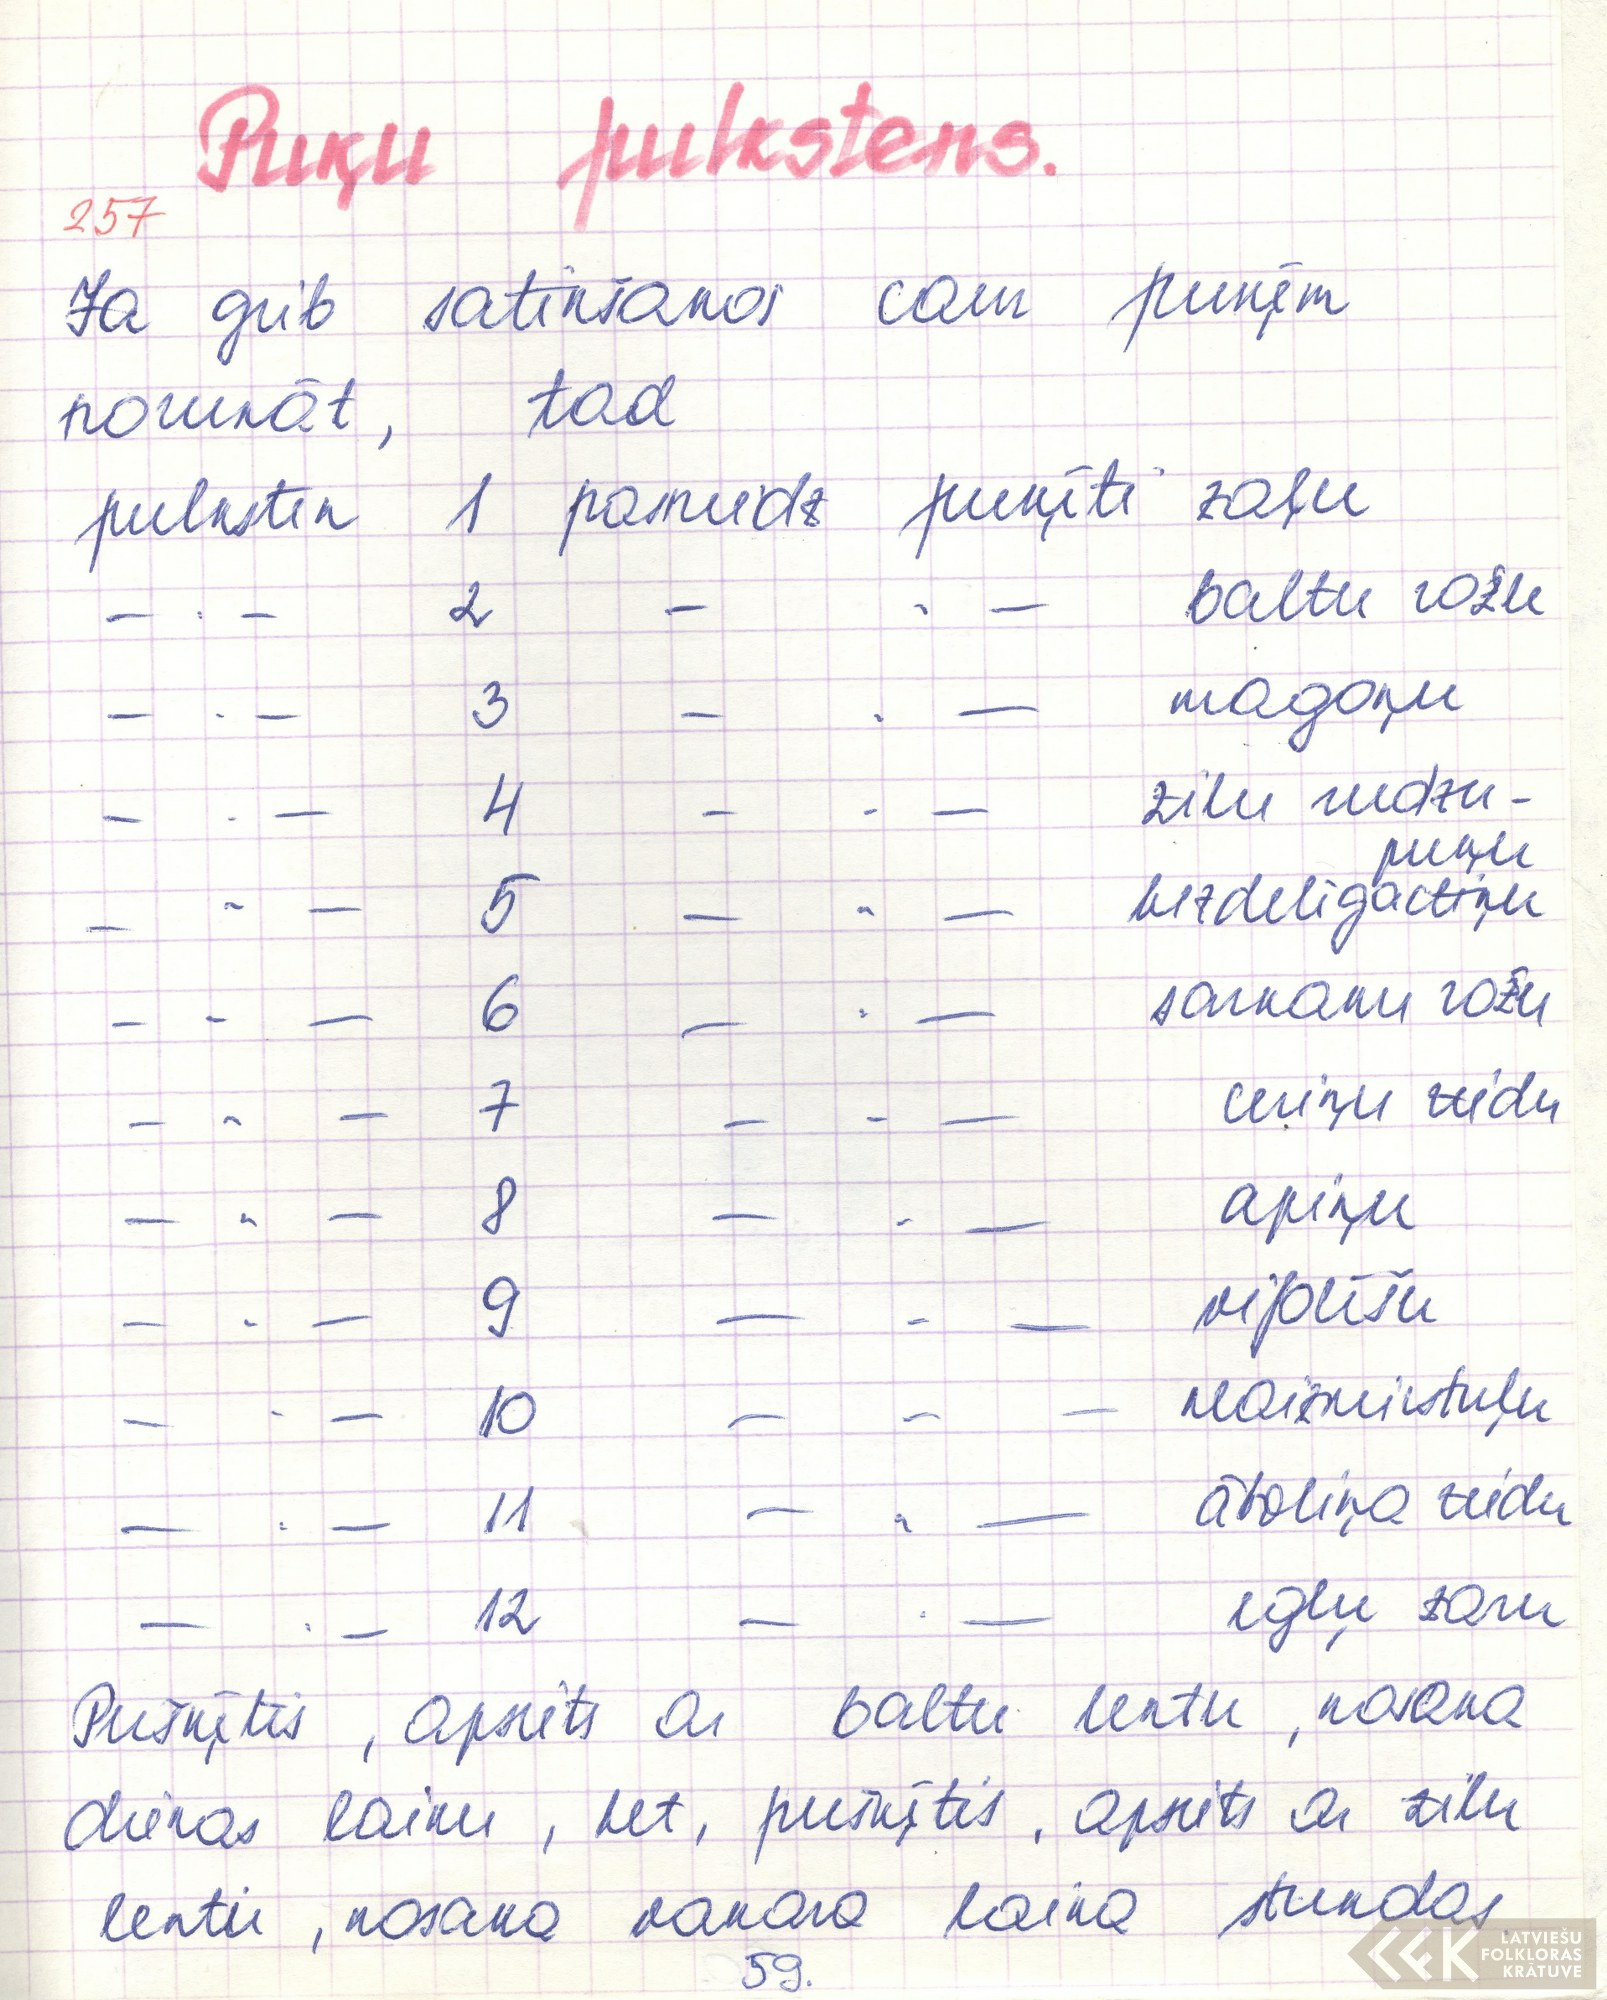 Puķu pulkstens.
257
Ja grib satikšanos caur puķēm
norunāt, tad
pulksten 1 pasniedz puķīti zaļu
— · — 2 — · — baltu rožu
— · — 3 — · — magoņu
— · — 4 — · — zilu rudzu-
puķu
— " — 5 — " — bezdelīgactiņu
— " — 6 — · — sarkanu rožu
— " — 7 — " — ceriņu ziedu
— " — 8 — " — apiņu
— · — 9 — " — vijolīšu
— " — 10 — " — neaizmirstuļu
— · — 11 — " — āboliņa ziedu
— · — 12 — · — egļu zaru
Pušķītis, apsiets ar baltu lentu, nosaka
dienas laiku, bet, pušķītis, apsiets ar zilu
lentu, nosaka vakara laika stundas.
59.
LATVIEŠU
FOLKLORAS
KRĀTUVE